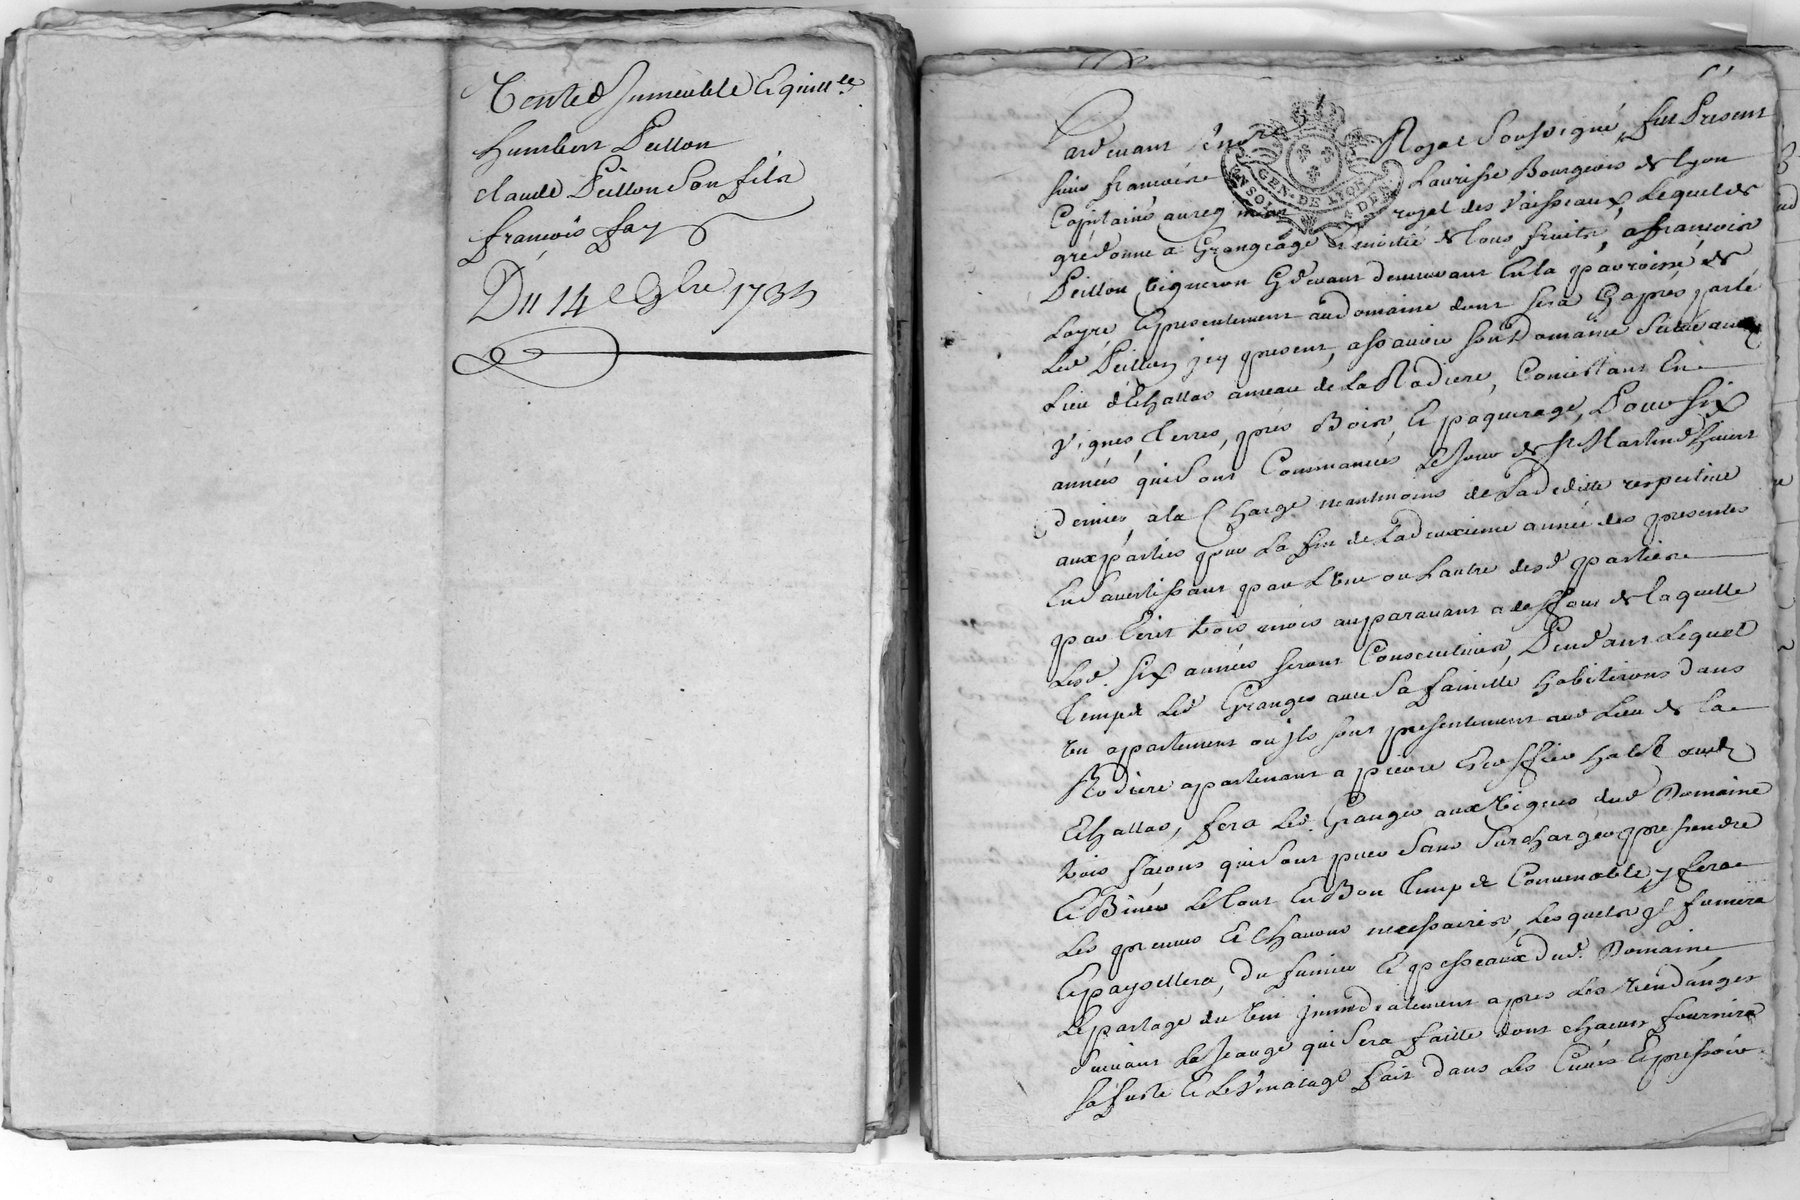 Vente d'Immeuble Et quitt.ce
Humbert Peillon
claude Peillon Son fils
françois fay
Du 14e 9bre 1735
Pardevant Royal Soussigné, fut Présent
Sieur françois Laurisse Bourgeois de lyon
Capitaine au regiment royal des Vaisseaux, Lequel de
gré donne a Grangeage & moitié de tous fruits, a françois
Peillon Vigneron Cy devant demeurant En la parroisse de
Loyre Et presentement au domaine dont sera Cy apres parlé
Led. Peillon jcy present, assavoir son Domaine Situé au
Lieu d'Echallas ameau de La Rodiere, Consistant En
Vignes, Terres, prés Bois, Et paquerage, Pour Six
années qui Sont Commancées Le Jour de St. Martin d'hiuert
dernier, a la Charge neantmoins de La deditte respective
aux parties pour La fin de La deuxieme année des presentes
En S'avertissant par L'une ou Lautre desd. parties
par Ecrit trois mois auparavant a deffaut de laquelle
Lesd. six années seront Consecutives, Pendant Lequel
Temps Led. Granger avec Sa famille habiterons dans
un appartement ou jls sont presentement aud. Lieu de La
Rodiere appartenant a pierre
Echallas, fera Led. Granger aux Vignes dud. Domaine
trois façons qui Sont puer Sans Surcharger presfendre
Et Biner Le tout En Bon Temps Et Convenable, y fera
Les preuves Et Chavons necessaires, Lesquels jl fumera
Et paysellera, du fumier Et pesseaux dud. Domaine
Le partage du Vin jmmediatement apres Les Vendanges
Suivant La Jauge qui Sera faitte dont chacun fournira
Sa futte Et Le Vinatage fait dans Les Cuves Et pressoir
GEN. DE LYON